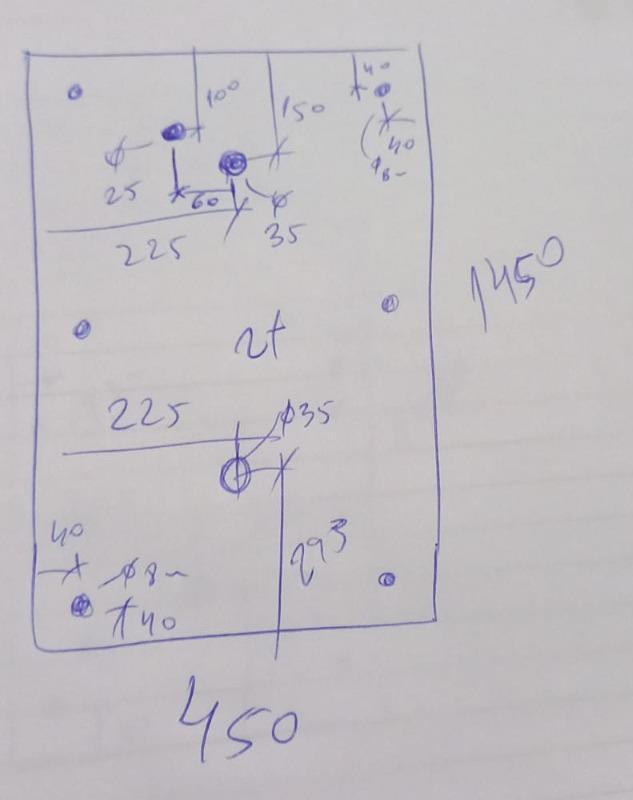 40
100
150
40
φ8
φ
25
60
φ
35
225
1450
2t
225
φ35
40
293
φ8
40
450